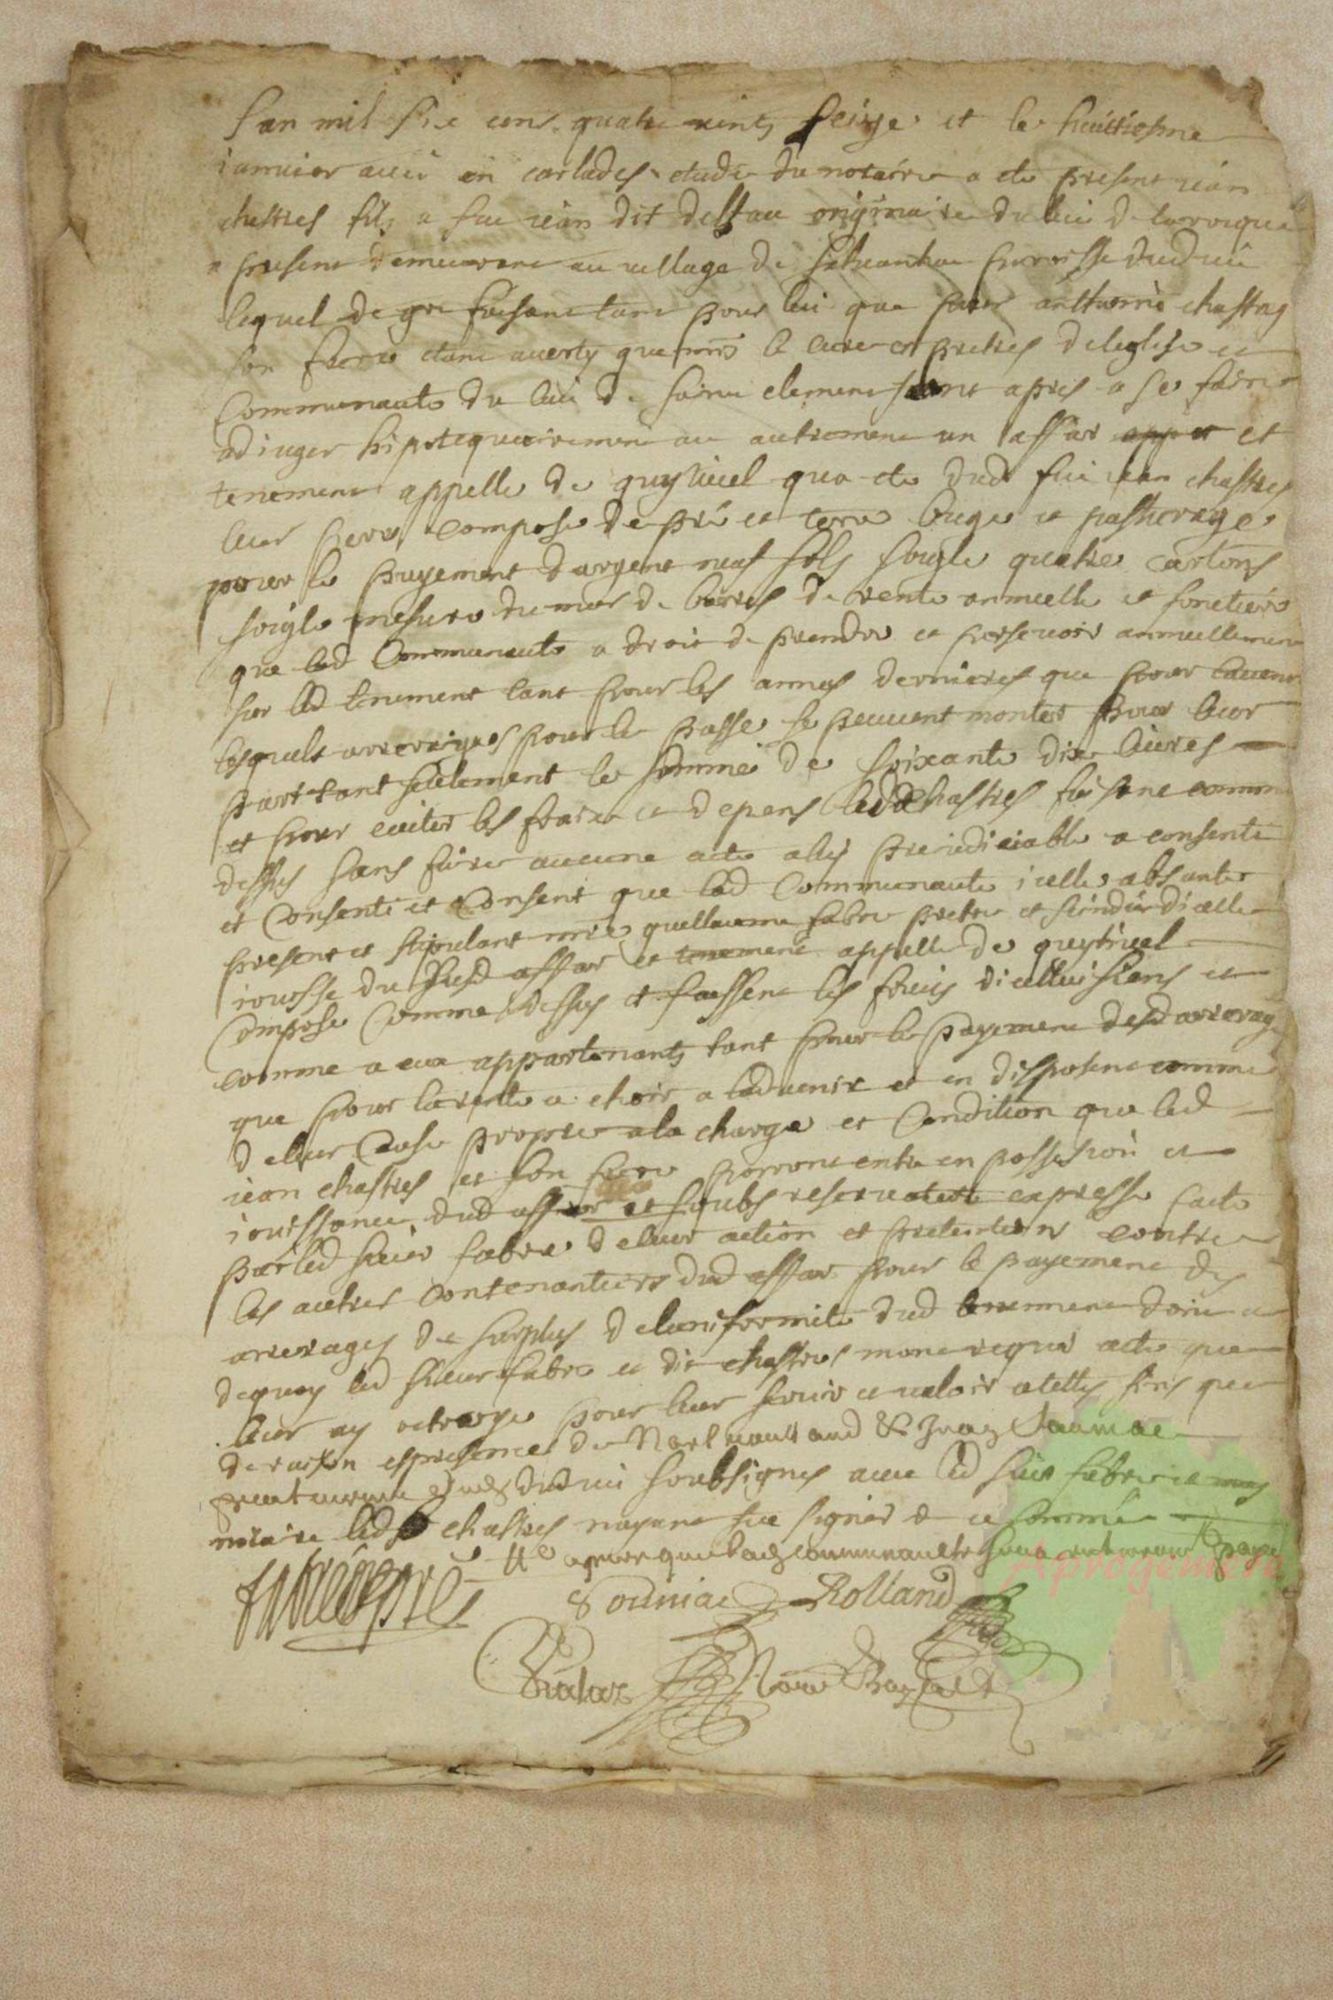 Lan mil six cens quatre vints seitze et le huitiesme
ianvier avic en carlades etude du notaire a ete present iean
chastres filz a feu iean dit delfau originaire du lieu de
a present demeurant au village de paroisse dud
lequel de gre faisant tant pour lui que pour anthoine chastres
son frere etant averty que mrs le cure et pretres de leglise et
Communaute du lieu de sainct clement sont apres a se faire
adiuger hipotequairement ou autrement un affar et
tenement appelle de puytivel qua ete dud feu iean chastres
leur pere compose de pré et terre buge et pasturage
pour le payement dargent neuf sols soigle quatre cartons
soigle mesure du mur de barres de rente annuelle et fonciere
que lad Communaute a droit de prendre et persevoir annuellement
sur led tenement tant pour les annees dernieres que pour
lesquels arreraiges pour le passe se peuvent monter pour leur
part tant sulement la somme de soixante dix livres
et pour eviter les fraix et depens led chastres faisant comme
dessus sans faire aucune acte a luy preiudiciable a consenti
et consenti et consent que lad Communaute icelle absante
present et stipulant mre guillaume fabre pretre et sindic dicelle
iouisse du susd affar et tenement appelle de puytivel
Compose Comme dessus et fassent les fruis dicellui siens et
comme a eux appartenants tant pour le payement desd arrerages
que pour la rente a choir a ladvenir et en disposent comme
de leur Cause propre a la charge et Condition que led
iean chastres et son frere porront entre en possession et
iouissance dud affar et soubs reservation expresse facte
par led sieur fabre de leur action et pretention contre
les autres Contenanciers dud affar pour le payement des
arrerages de surplus de luniformite dud tenement dont et
de quoy led sieur fabre et dit chastres mont requis acte que
leur ay octroye pour leur servir et valoir a telles fins que
de raison espresences de & Souniac
dud lieu soubsignes avec led sieur fabre et moy
notaire led chastres nayant sceu signer de ce somme
apres que lad communaulte
Souniac Rolland